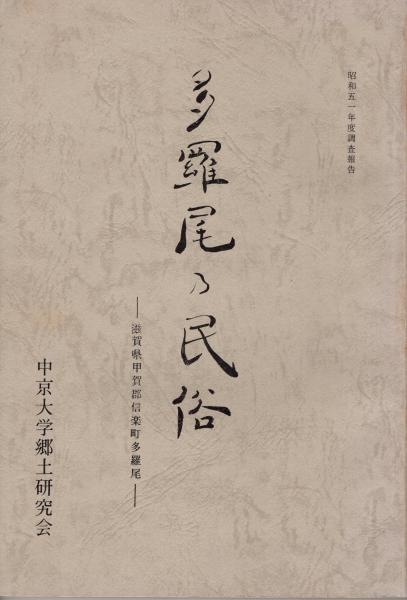 昭和五一年度調査報告
多羅尾乃民俗
―滋賀県甲賀郡信楽町多羅尾―
中京大学郷土研究会